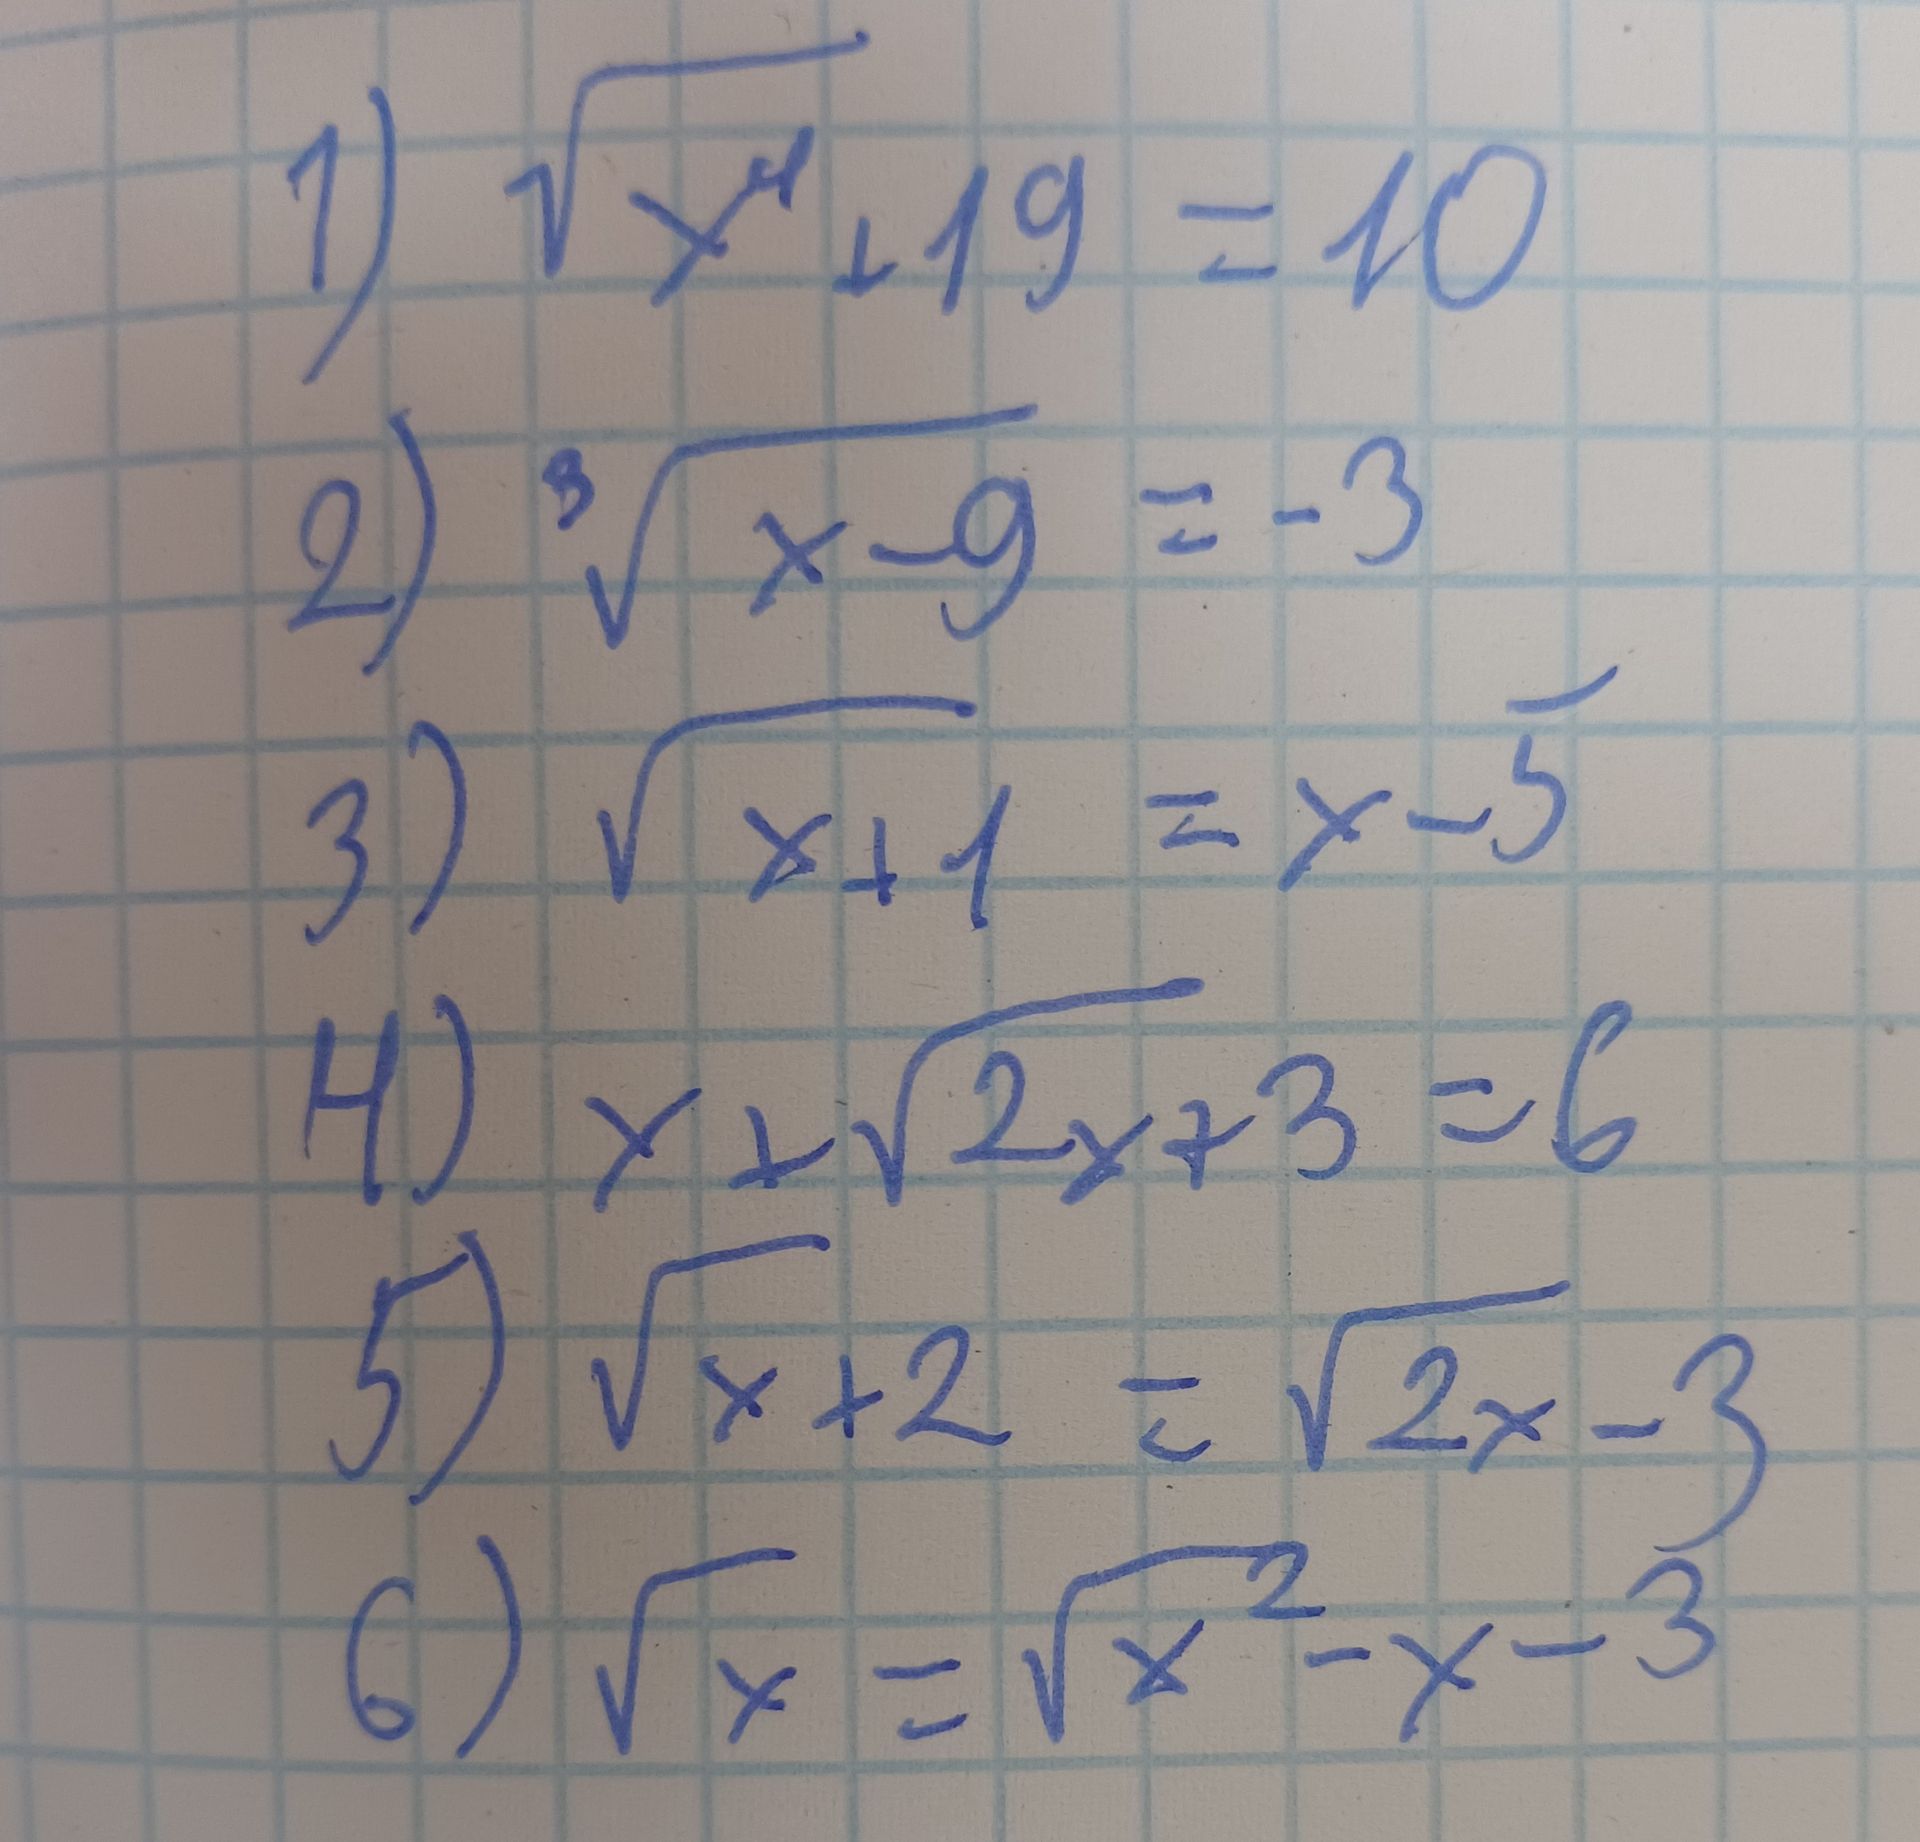 1) √x⁴+19 = 10
2) ³√x-9 = -3
3) √x+1 = x-5
4) x+√2x+3 = 6
5) √x+2 = √2x-3
6) √x = √x²-x-3